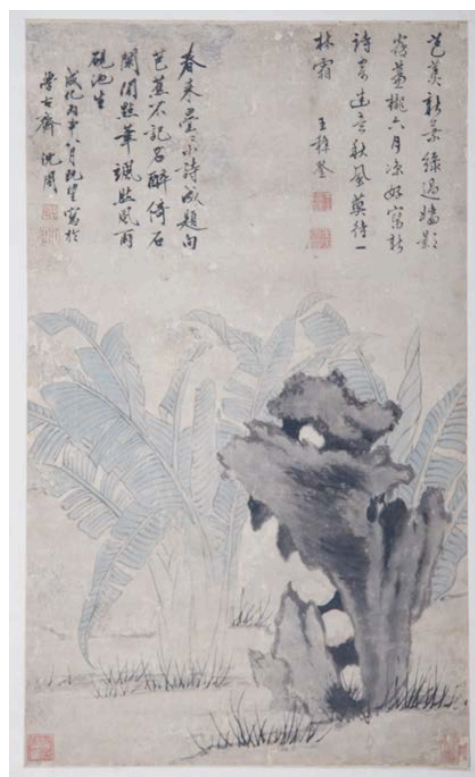 芭蕉新葉綠過墻影
落櫳六月涼好寫新
詩寄遠意秋風莫待一
林霜 王穉登
春來小詩成題向
芭蕉不記名醉倚石
闌閒點筆颯然風雨
硯池生
成化丙申八月既望寫於
學古齋 沈周